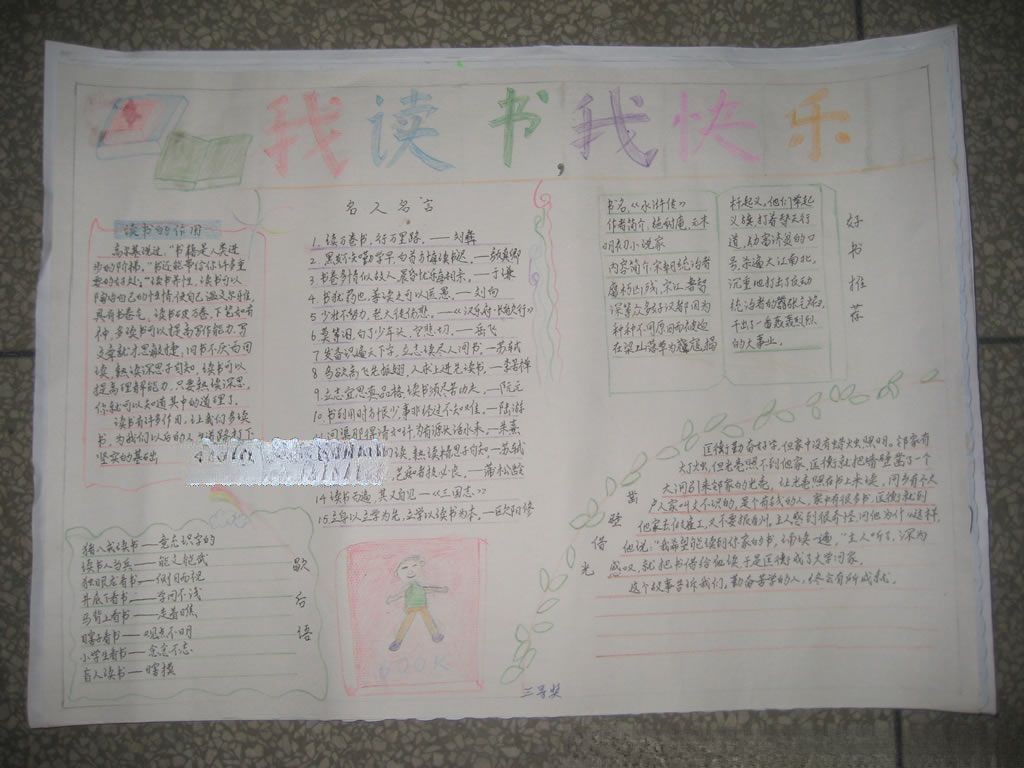 我读书,我快乐
读书的作用
高尔基说过:"书籍是人类进
步的阶梯。"书还能带给你许多重
要的好处。"读书养性,读书可以
陶冶自己的性情,使自己温文尔雅,
具有书卷气;读书破万卷,下笔如有
神,多读书可以提高写作能力,写
文章就才思敏捷;旧书不厌百回
读,熟读深思子自知,读书可以
提高理解能力,只要熟读深思,
你就可以知道其中的道理了。
读书有许多作用,让我们多读
书,为我们以后的人生道路打下
坚实的基础
名人名言
1.读万卷书,行万里路。——刘彝
2.黑发不知勤学早,白首方悔读书迟。——颜真卿
3.书卷多情似故人,晨昏忧乐每相亲。——于谦
4.书犹药也,善读之可以医愚。——刘向
5.少壮不努力,老大徒伤悲。——《汉乐府·长歌行》
6.莫等闲,白了少年头,空悲切。——岳飞
7.发奋识遍天下字,立志读尽人间书。——苏轼
8.鸟欲高飞先振翅,人求上进先读书。——李若禅
9.立志宜思真品格,读书须尽苦功夫。——阮元
10.书到用时方恨少事非经过不知难。——陆游
问渠那得清如许,为有源头活水来。——朱熹
回读,熟读精思子自知——苏轼
艺如者技必良。——蒲松龄
14.读书百遍,其义自见——《三国志》
15.立身以立学为先,立学以读书为本。——欧阳修
书名:《水浒传》
作者简介:施耐庵,元末
明初小说家
内容简介:宋朝统治者
腐朽凶残,宋江、鲁智
深等众多好汉都因为
种种不同原因而被迫
在梁山落草为寇,揭
杆起义。他们举起
义旗,打着替天行
道、劫富济贫的口
号,杀遍大江南北,
沉重地打击了反动
统治者的嚣张气焰,
干出了一番轰轰烈烈
的大事业。
好书推荐
凿壁借光
匡衡勤奋好学,但家中没有蜡烛照明。邻家有
灯烛,但光亮照不到他家,匡衡就把墙壁凿了一个
大洞引来邻家的光亮,让光亮照在书上来读。同乡有个大
户人家叫文不识的,是个有钱的人,家中有很多书。匡衡就到
他家去做雇工,又不要报酬。主人感到很奇怪,问他为什么这样,
他说:"我希望能读到你家的书,通读一遍。"主人听了,深为
感叹,就把书借给他读。于是匡衡成了大学问家。
这个故事告诉我们,勤奋苦学的人,终会有所成就。
歇后语
猪八戒读书——充识字的
读书人当兵——能文能武
独眼龙看书——
井底下看书——学问不浅
马背上看书——走着瞧
瞎子看书——观点不明
小学生看书——念念不忘
盲人读书——瞎摸
BOOK
三等奖